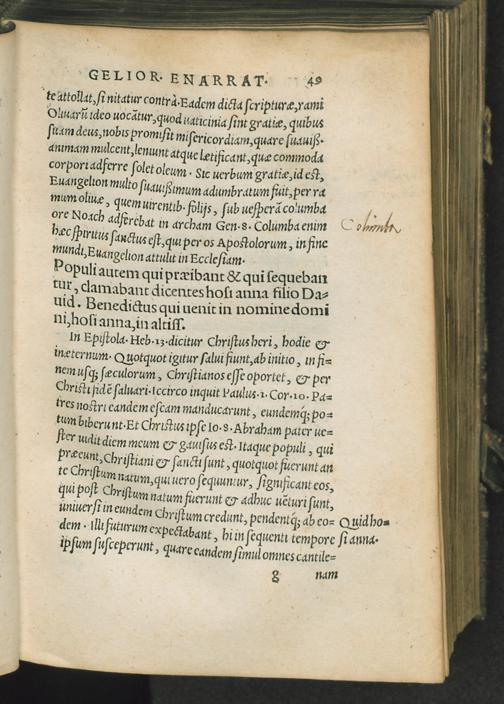 GELIOR· ENARRAT· 49
te attollat, si nitatur contrà· Eadem dicta scripturæ, rami
Oliuarũ ideo uocãtur, quod uaticinia sint gratiæ, quibus
suam deus, nobis promisit misericordiam, quare suauiß·
animam mulcent, leniunt atque lætificant, quæ commoda
corpori adferre solet oleum · Sic uerbum gratiæ, id est,
Euangelion multo suauißimum adumbratum fuit, per ra
mum oliuæ, quem uirentib· folijs, sub uesperã columba
ore Noach adferebat in archam Gen· 8· Columba enim
Columba
hæc spiritus sanctus est, qui per os Apostolorum, in fine
mundi, Euangelion attulit in Ecclesiam·
Populi autem qui præibant & qui sequeban
tur, clamabant dicentes hosi anna filio Da-
uid. Benedictus qui uenit in nomine domi
ni, hosi anna, in altiss.
In Epistola· Heb· 13· dicitur Christus heri, hodie &
in æternum· Quotquot igitur salui fiunt, ab initio, in fi-
nem usq; sæculorum, Christianos esse oportet, & per
Christi fidẽ saluari· Iccirco inquit Paulus· 1· Cor· 10· Pa-
tres nostri eandem escam manducarunt, eundemq; po-
tum biberunt· Et Christus ipse Io· 8· Abraham pater ue-
ster uidit diem meum & gauisus est· Itaque populi, qui
præeunt, Christiani & sancti sunt, quotquot fuerunt an
te Christum natum, qui uero sequuntur, significant eos,
qui post Christum natum fuerunt & adhuc uẽturi sunt,
uniuersi in eundem Christum credunt, pendentq; ab eo-
Quid ho-
dem · Illi futurum expectabant, hi in sequenti tempore
si anna·
ipsum susceperunt, quare eandem simul omnes cantile-
g nam